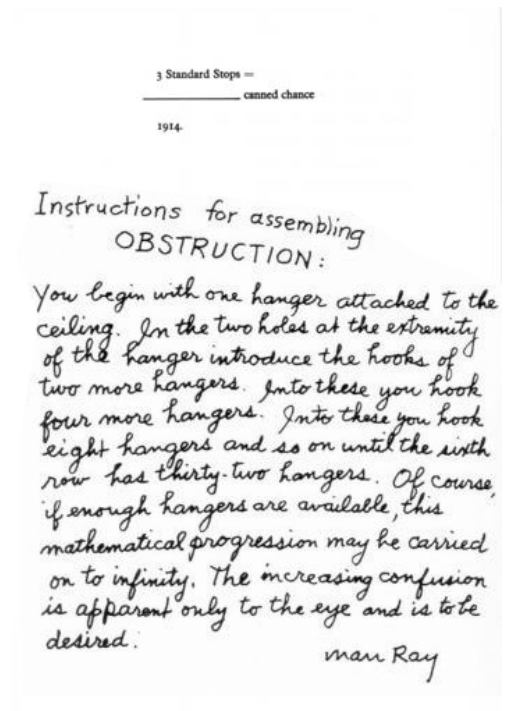 3 Standard Stops =
____________ canned chance
1914.
Instructions for assembling
OBSTRUCTION:
You begin with one hanger attached to the
ceiling. In the two holes at the extremity
of the hanger introduce the hooks of
two more hangers. Into these you hook
four more hangers. Into these you hook
eight hangers and so on until the sixth
row has thirty-two hangers. Of course,
if enough hangers are available, this
mathematical progression may be carried
on to infinity. The increasing confusion
is apparent only to the eye and is to be
desired.
man Ray